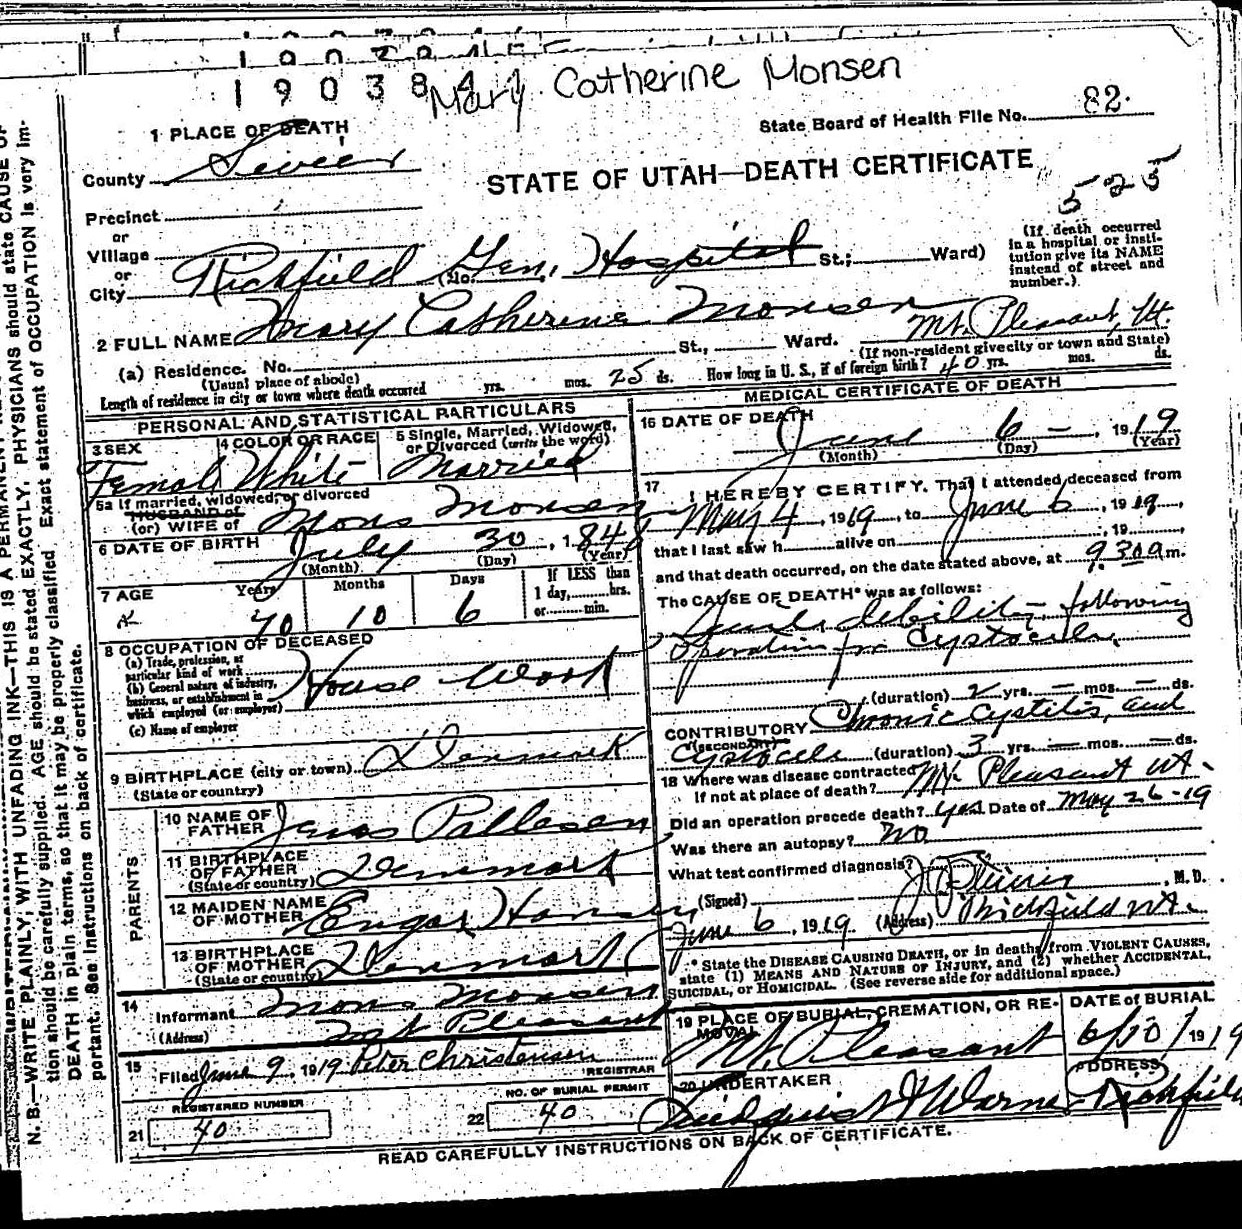 1903841
Mary Catherine Monsen
State Board of Health File No. 82.
1 PLACE OF DEATH
County Sevier
STATE OF UTAH—DEATH CERTIFICATE
525
Precinct
or
Village
or
City Richfield (No. Gen. Hospital St.; Ward)
(If death occurred in a hospital or institution give its NAME instead of street and number.)
2 FULL NAME Mary Catherine Monsen
(a) Residence. No. St., Ward. Mt. Pleasant, Ut
(Usual place of abode) (If non-resident give city or town and State)
Length of residence in city or town where death occurred yrs. mos. 25 ds. How long in U. S., if of foreign birth? 40 yrs. mos. ds.
PERSONAL AND STATISTICAL PARTICULARS
3 SEX Female
4 COLOR OR RACE White
5 Single, Married, Widowed, or Divorced (write the word) Married
5a If married, widowed, or divorced
HUSBAND of
(or) WIFE of Mons Monsen
6 DATE OF BIRTH July 30, 184
(Month) (Day) (Year)
7 AGE Years 70 Months 10 Days 6
If LESS than 1 day, hrs. or min.
8 OCCUPATION OF DECEASED
(a) Trade, profession, or particular kind of work House Work
(b) General nature of industry, business, or establishment in which employed (or employer)
(c) Name of employer
9 BIRTHPLACE (city or town) Denmark
(State or country)
PARENTS
10 NAME OF FATHER Pallesen
11 BIRTHPLACE OF FATHER Denmark
(State or country)
12 MAIDEN NAME OF MOTHER Hansen
13 BIRTHPLACE OF MOTHER Denmark
(State or country)
14 Informant Mons Monsen
(Address) Mt Pleasant
15 Filed June 9, 1919 Peter Christensen
REGISTRAR
REGISTERED NUMBER
21 40
NO. OF BURIAL PERMIT
22 40
MEDICAL CERTIFICATE OF DEATH
16 DATE OF DEATH June 6 -, 1919
(Month) (Day) (Year)
17 I HEREBY CERTIFY, That I attended deceased from
May 4, 1919, to June 6, 1919,
that I last saw h alive on , 19 ,
and that death occurred, on the date stated above, at 9.30 a m.
The CAUSE OF DEATH* was as follows:
Senile debility following
operation for Cystocele.
(duration) 2 yrs. — mos. — ds.
CONTRIBUTORY Chronic Cystitis, and
(SECONDARY)
Cystocele (duration) 3 yrs. — mos. — ds.
18 Where was disease contracted
If not at place of death? Mt. Pleasant Ut.
Did an operation precede death? yes. Date of May 26-19
Was there an autopsy? No
What test confirmed diagnosis?
(Signed) , M.D.
June 6, 1919. (Address) Richfield Ut.
* State the DISEASE CAUSING DEATH, or in deaths from VIOLENT CAUSES,
state (1) MEANS AND NATURE OF INJURY, and (2) whether ACCIDENTAL,
SUICIDAL, or HOMICIDAL. (See reverse side for additional space.)
19 PLACE OF BURIAL, CREMATION, OR REMOVAL Mt. Pleasant
DATE of BURIAL 6/10/1919
20 UNDERTAKER
ADDRESS Richfield
READ CAREFULLY INSTRUCTIONS ON BACK OF CERTIFICATE.
N. B.—WRITE PLAINLY, WITH UNFADING INK—THIS IS A PERMANENT
tion should be carefully supplied. AGE should be stated EXACTLY. PHYSICIANS should state CAUSE OF
DEATH in plain terms, so that it may be properly classified. Exact statement of OCCUPATION is very im-
portant. See instructions on back of certificate.